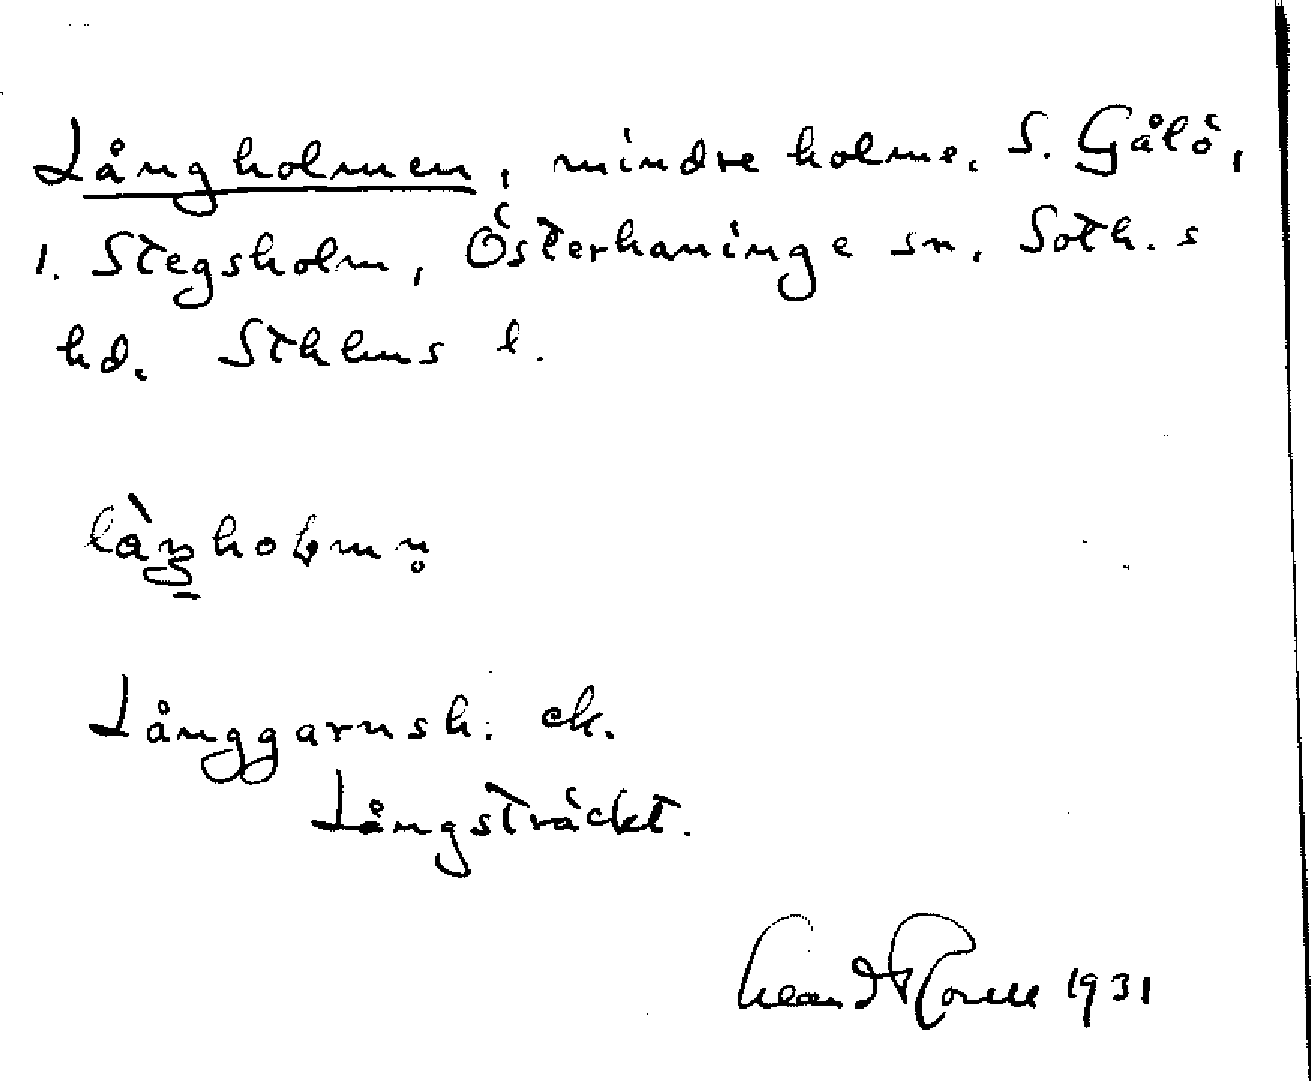 Långholmen, mindre holme. S. Gålö,
1. Stegsholm, Österhaninge sn. Soth.s
hd. Sthlms l.
Långgarnsh. ck.
Långsträckt.
1931